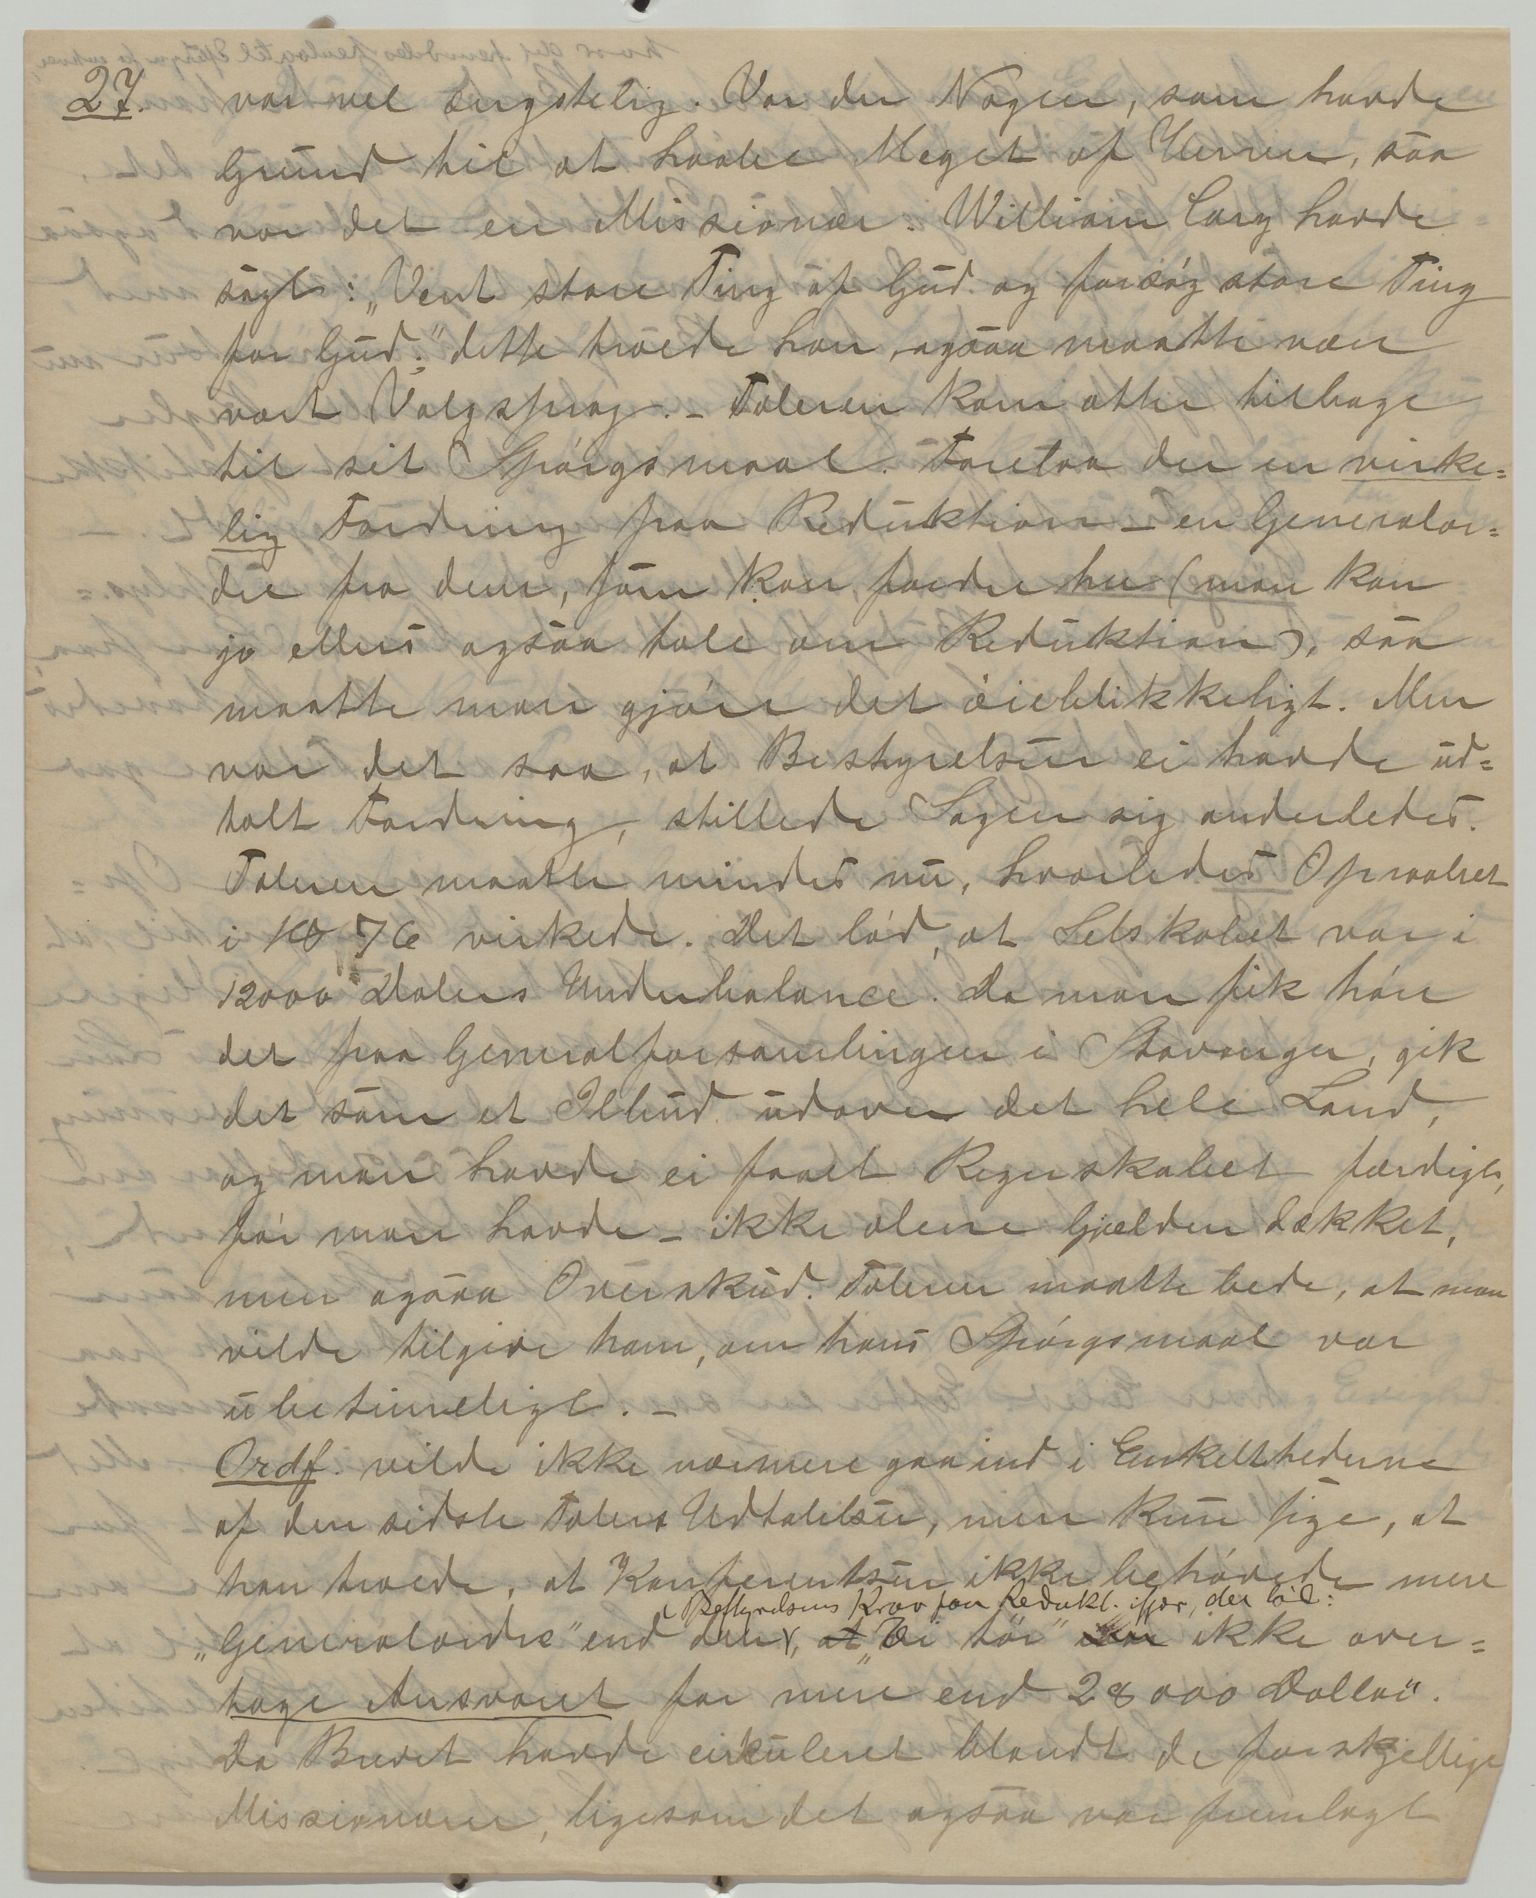 27. var vel ængstelig. Var der Nogen, som havde
Grund til at haabe Meget af Herren, saa
var det en Missionær. William Cary havde
sagt: „Vent store Ting af Gud og forsøg store Ting
for Gud;" dette troede han, ogsaa maatte være
vort Valgsprog. – Taleren kom atter tilbage
til sit Spørgsmaal. Foretaa der en virke=
lig Fordring paa Reduktion – en Generalor=
dre fra dem, som kan fordre her (man kan
jo ellers ogsaa tale om Reduktion), saa
maatte man gjøre det øieblikkeligt. Men
var det saa, at Bestyrelsen ei havde ud=
talt Fordring, stillede Sagen sig anderledes.
Taleren maatte mindes nu, hvorledes Opraabet
i 76 virkede. Det lød, at Selskabet var i
12000 Dalers Underbalance. Da man fik høre
det paa Generalforsamlingen i Stavanger, gik
det som et Ilbud udover det hele Land,
og man havde ei faaet Regnskabet færdigt,
før man havde – ikke alene Gjælden dækket,
men ogsaa Overskud. Taleren maatte bede, at man
vilde tilgive ham, om hans Spørgsmaal var
ubetimeligt. –
Ordf. vilde ikke nærmere gaa ind i Enkelthederne
af den sidste Talers Udtalelser, men kun sige, at
han troede, at Konferentsen ikke behøvede mere
Bestyrelsens Krav paa Redukt. især, der lød:
„Generalordre" end den, at „Vi tør" ikke over=
tage Ansvaret for mere end 28000 Dollar".
Da Brevet havde cirkuleret blandt de forskjellige
Missionærer, ligesom det ogsaa var fremlagt